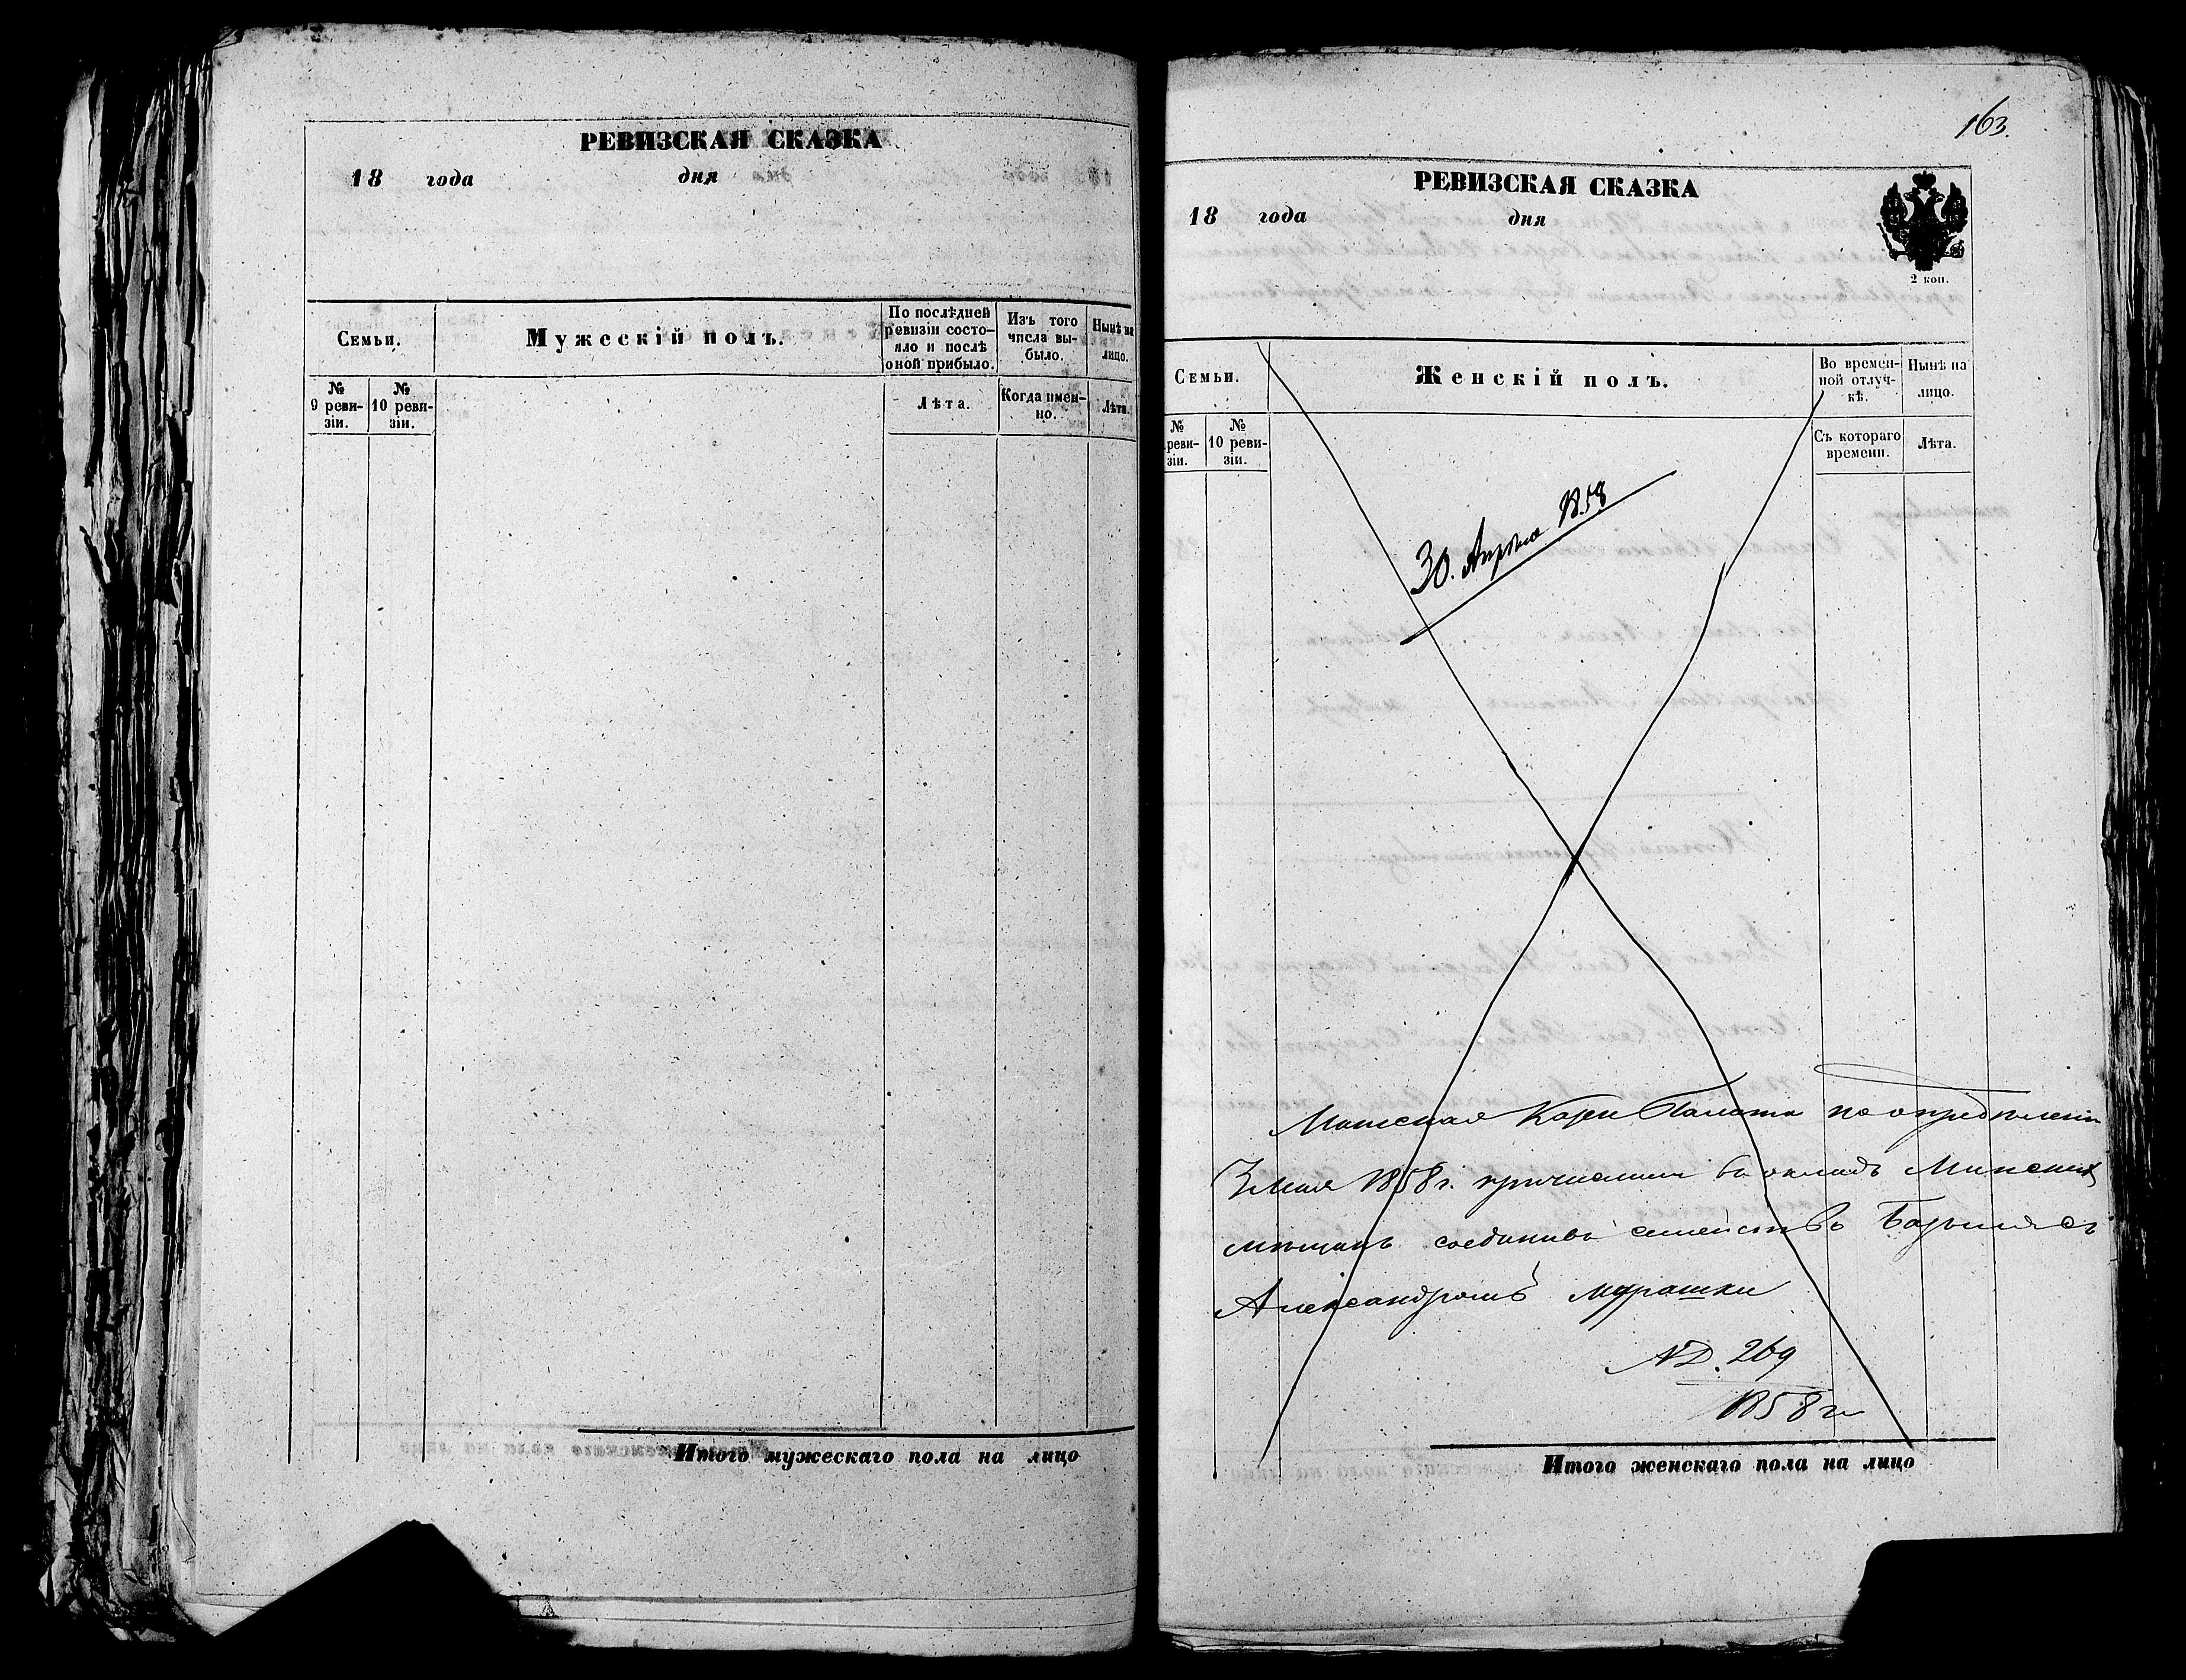 РЕВИЗСКАЯ СКАЗКА
18 года дня
Семьи.
Мужескій полъ.
По послѣдней ревизіи состо-
яло и послѣ
оной прибыло.
Изъ того
числа вы-
было.
Нынѣ на
лицо.
№
9 реви-
зіи.
№
10 реви-
зіи.
Лѣта.
Когда имен-
но.
Лѣта.
Итого мужескаго пола на лицо
163.
РЕВИЗСКАЯ СКАЗКА
18 года дня
2 коп.
Семьи.
Женскій полъ.
Во времен-
ной отлуч-
кѣ.
Нынѣ на
лицо.
№
реви-
зіи.
№
10 реви-
зіи.
Съ котораго
времени.
Лѣта.
30. Апрѣля 1858
Минская Казен Палата по опредѣленію
3 мая 1858 г. причислила въ окладъ Минскихъ
мѣщанъ соединивъ семейство съ
Александромъ Мурашки
№ Д. 269
1858 г.
Итого женскаго пола на лицо